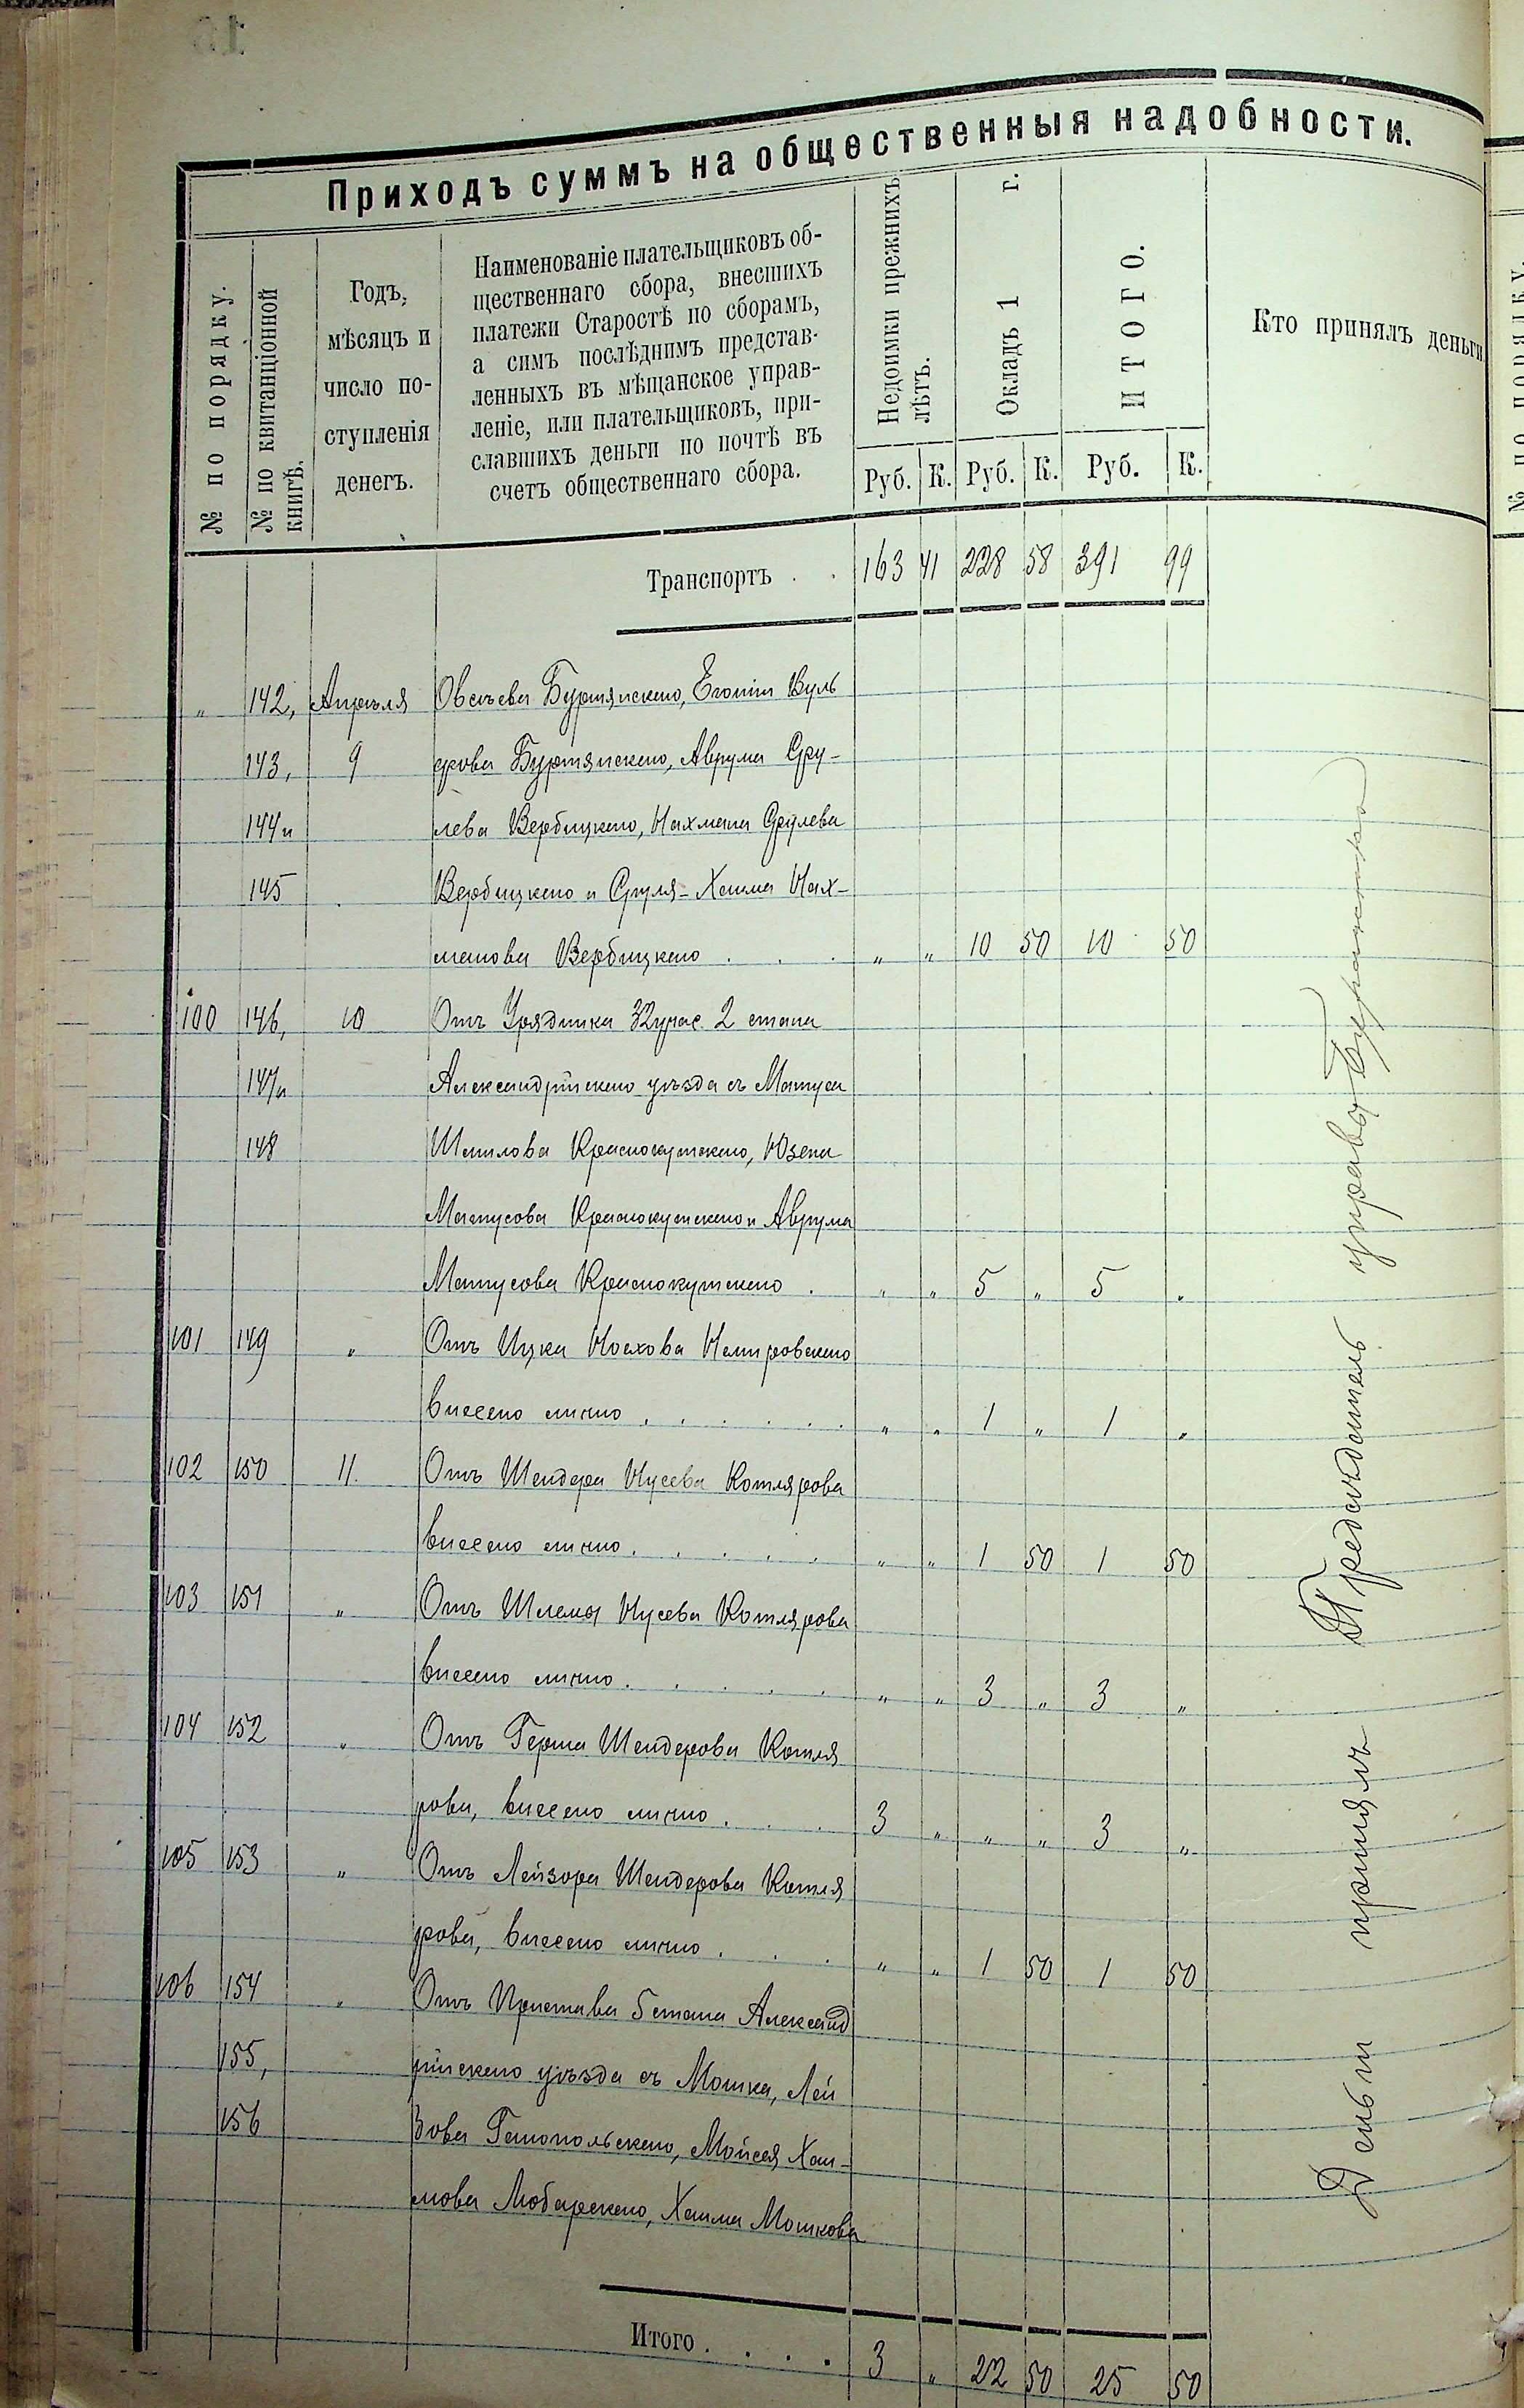 Приходъ суммъ на общественныя надобности.
№ по порядку.
№ по квитанціонной
книгѣ.
Годъ,
мѣсяцъ и
число по-
ступленія
денегъ.
Наименованіе плательщиковъ об-
щественнаго сбора, внесшихъ
платежи Старостѣ по сборамъ,
а симъ послѣднимъ представ-
ленныхъ въ мѣщанское управ-
леніе, или плательщиковъ, при-
славшихъ деньги по почтѣ въ
счетъ общественнаго сбора.
Недоимки прежнихъ
лѣтъ.
Окладъ 1 г.
ИТОГО.
Руб. К. Руб. К. Руб. К.
Кто принялъ деньги
Транспортъ . . 163 41 228 58 391 99
" 142, Апрѣля Овсѣева Буртянскаго, Вуль
143, 9 фова Буртянскаго, Аврума Сру-
144 и лева Вербицкаго, Нахмана Срулева
145 Вербицкаго и Сруля-Хаима Нах-
манова Вербицкаго . . . " " 10 50 10 50
100 146, 10 Отъ Урядника 32 учас. 2 стана
147 и Александрійскаго уѣзда съ Матуса
148 Шмилова Краснокутскаго, Юзепа
Матусова Краснокутскаго и Аврума
Матусова Краснокутскаго . " " 5 " 5 "
101 149 " Отъ Ицка Носхова Немировскаго
внесено лично . . . . . . " " 1 " 1 "
102 150 11. Отъ Шендера Нусева Котлярова
внесено лично . . . . . " " 1 50 1 50
103 151 " Отъ Шлемы Нусева Котлярова
внесено лично . . . . . " " 3 " 3 "
104 152 " Отъ Герша Шендерова Котля
рова, внесено лично . . . 3 " " " 3 "
105 153 " Отъ Лейзора Шендерова Котля
рова, внесено лично . . . " " 1 50 1 50
106 154 " Отъ Пристава 5 стана Александ
155, рійскаго уѣзда съ Мошка, Лей
156 зова Мойсея Хаи-
мова Любарскаго, Хаима Мошкова
Итого . . . . 3 " 22 50 25 50
Деньги принялъ Предсѣдатель управы
№ по порядку.